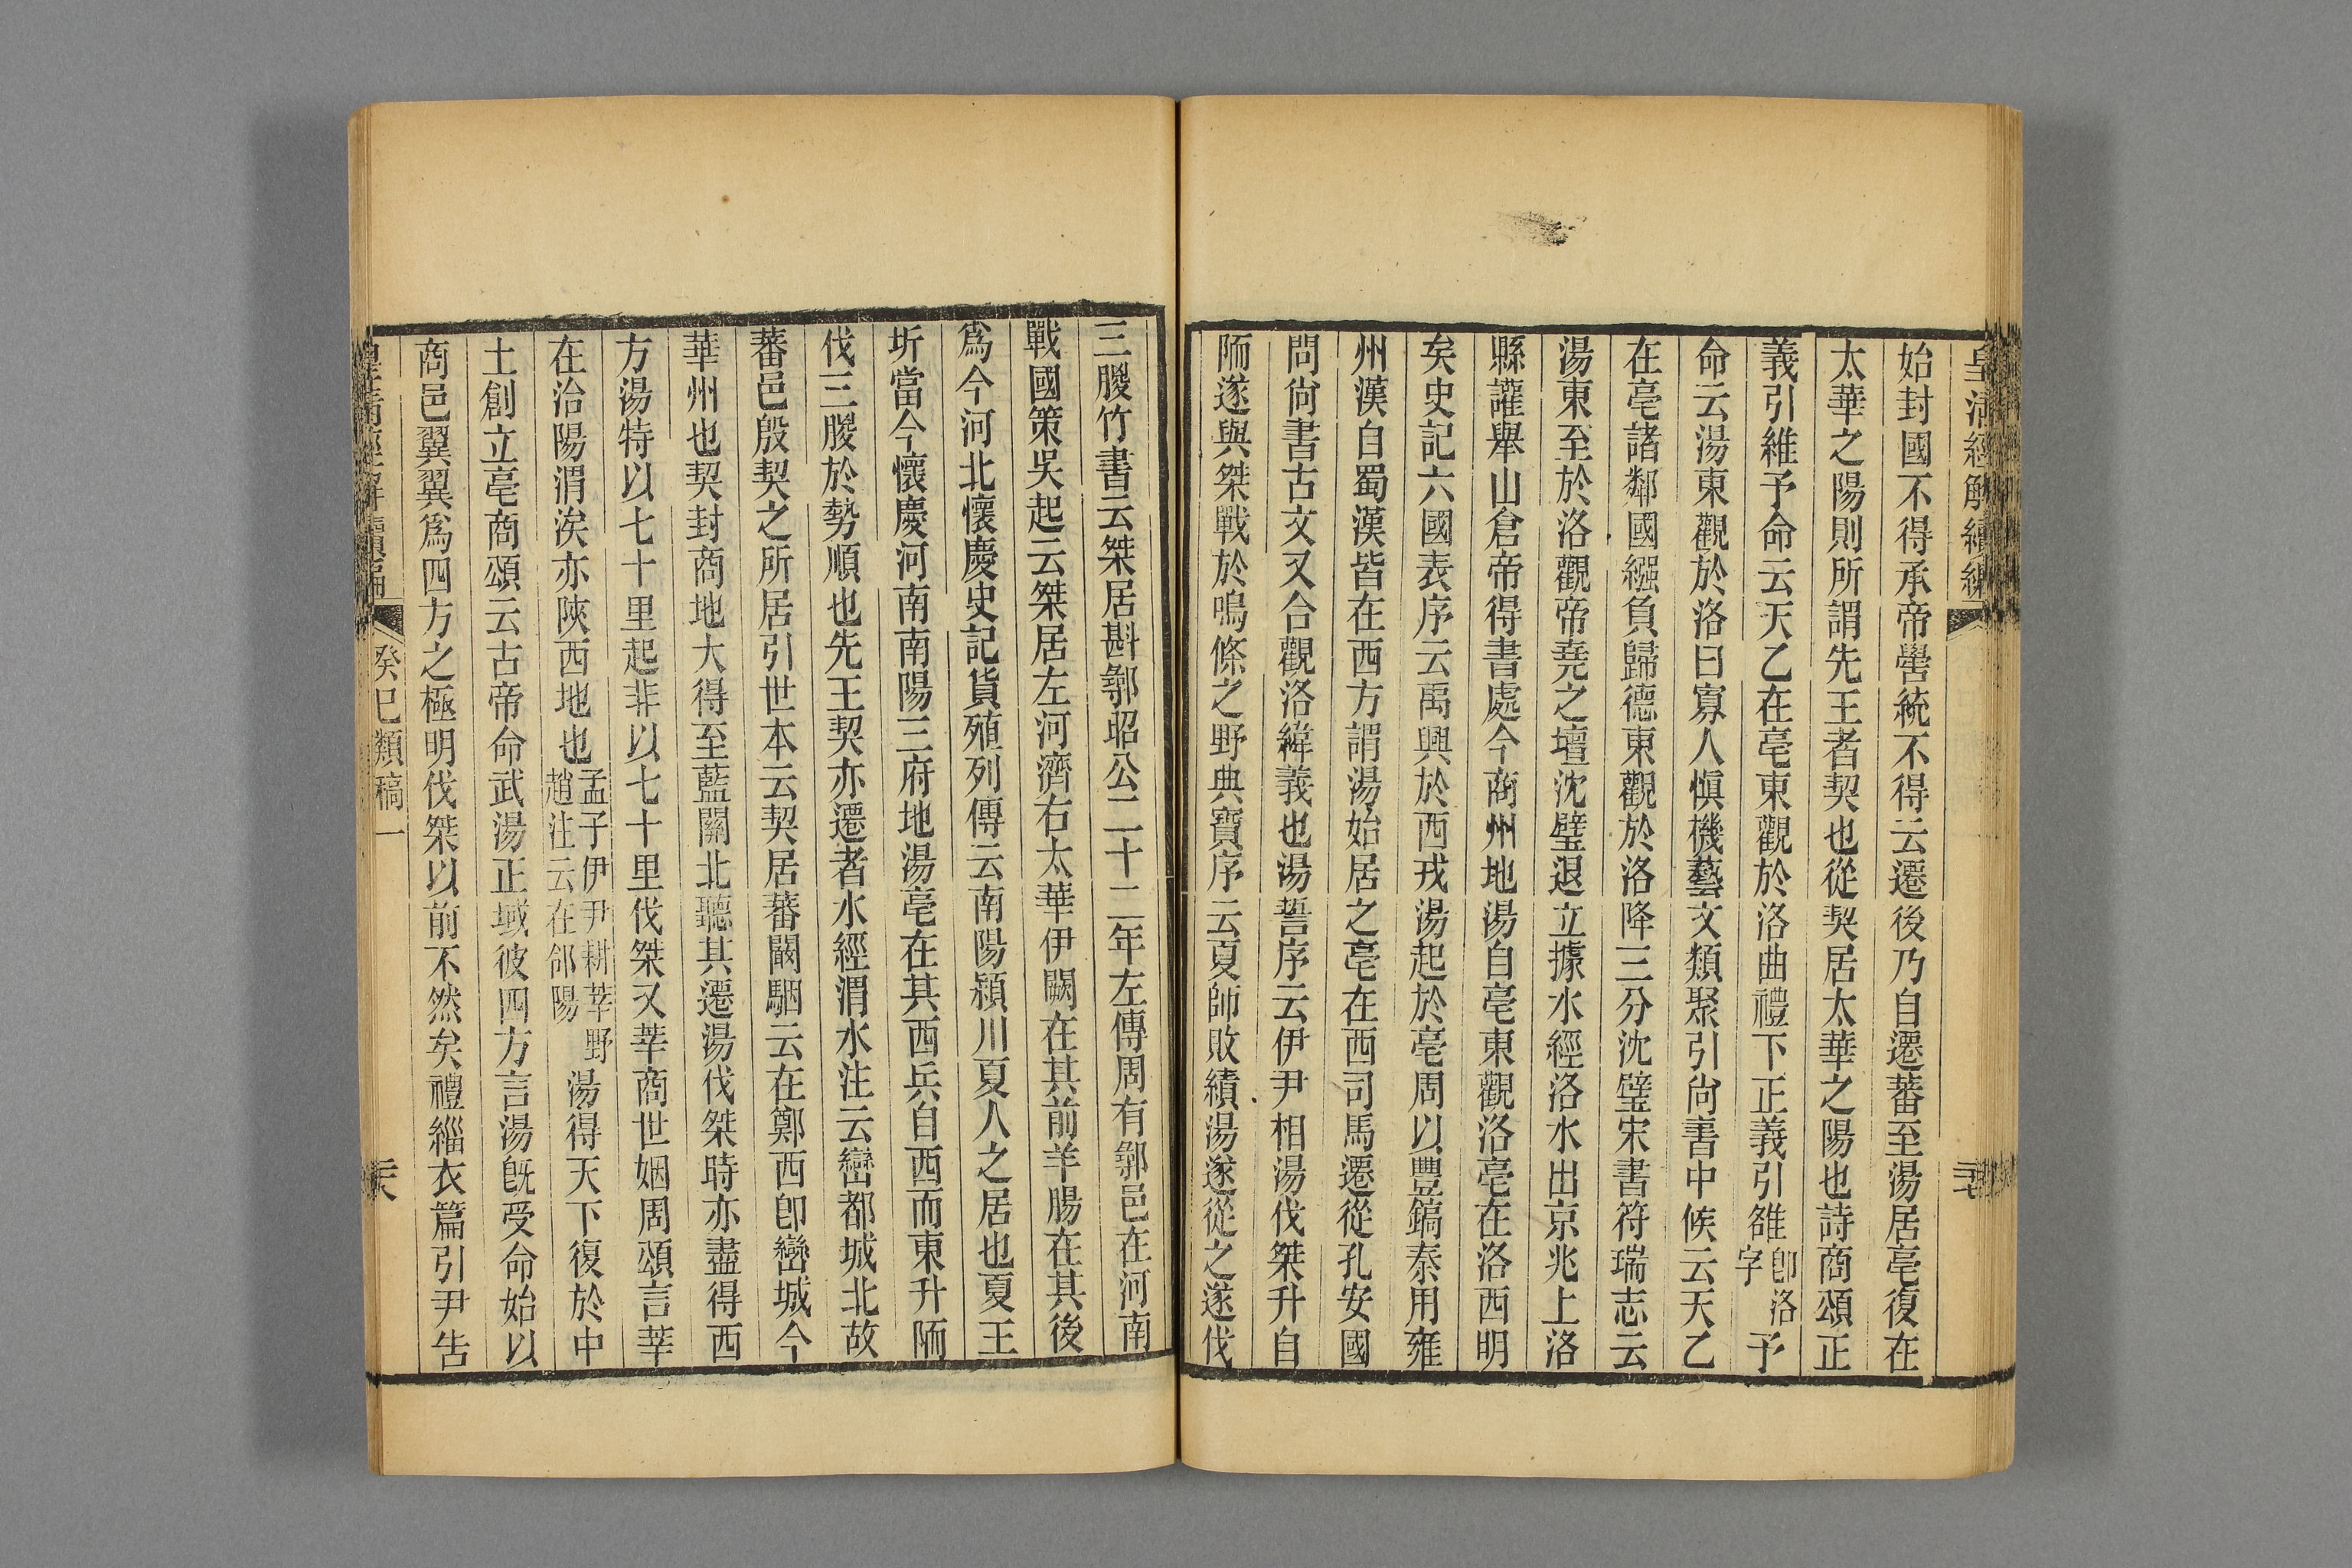 皇清經解續編
始封國不得承帝嚳統不得云遷後乃自遷蕃至湯居亳復在
太華之陽則所謂先王者契也從契居太華之陽也詩商頌正
義引維予命云天乙在亳東觀於洛曲禮下正義引雒卽洛字予
命云湯東觀於洛曰寡人愼機藝文類聚引尙書中候云天乙
在亳諸鄰國繦負歸德東觀於洛降三分沈璧宋書符瑞志云
湯東至於洛觀帝堯之壇沈璧退立據水經洛水出京兆上洛
縣讙舉山倉帝得書處今商州地湯自亳東觀洛亳在洛西明
矣史記六國表序云禹興於西戎湯起於亳周以豐鎬秦用雍
州漢自蜀漢皆在西方謂湯始居之亳在西司馬遷從孔安國
問尙書古文又合觀洛緯義也湯誓序云伊尹相湯伐桀升自
陑遂與桀戰於鳴條之野典寶序云夏師敗績湯遂從之遂伐
三朡竹書云桀居斟鄩昭公二十二年左傳周有鄩邑在河南
戰國策吳起云桀居左河濟右太華伊闕在其前羊腸在其後
爲今河北懷慶史記貨殖列傳云南陽潁川夏人之居也夏王
圻當今懷慶河南南陽三府地湯亳在其西兵自西而東升陑
伐三朡於勢順也先王契亦遷者水經渭水注云巒都城北故
蕃邑殷契之所居引世本云契居蕃闞駰云在鄭西卽巒城今
華州也契封商地大得至藍關北聽其遷湯伐桀時亦盡得西
方湯特以七十里起非以七十里伐桀又莘商世姻周頌言莘
在洽陽渭涘亦陝西地也孟子伊尹耕莘野趙注云在郃陽湯得天下復於中
土創立亳商頌云古帝命武湯正域彼四方言湯旣受命始以
商邑翼翼爲四方之極明伐桀以前不然矣禮緇衣篇引尹吿
皇清經解續編
癸巳類稿一